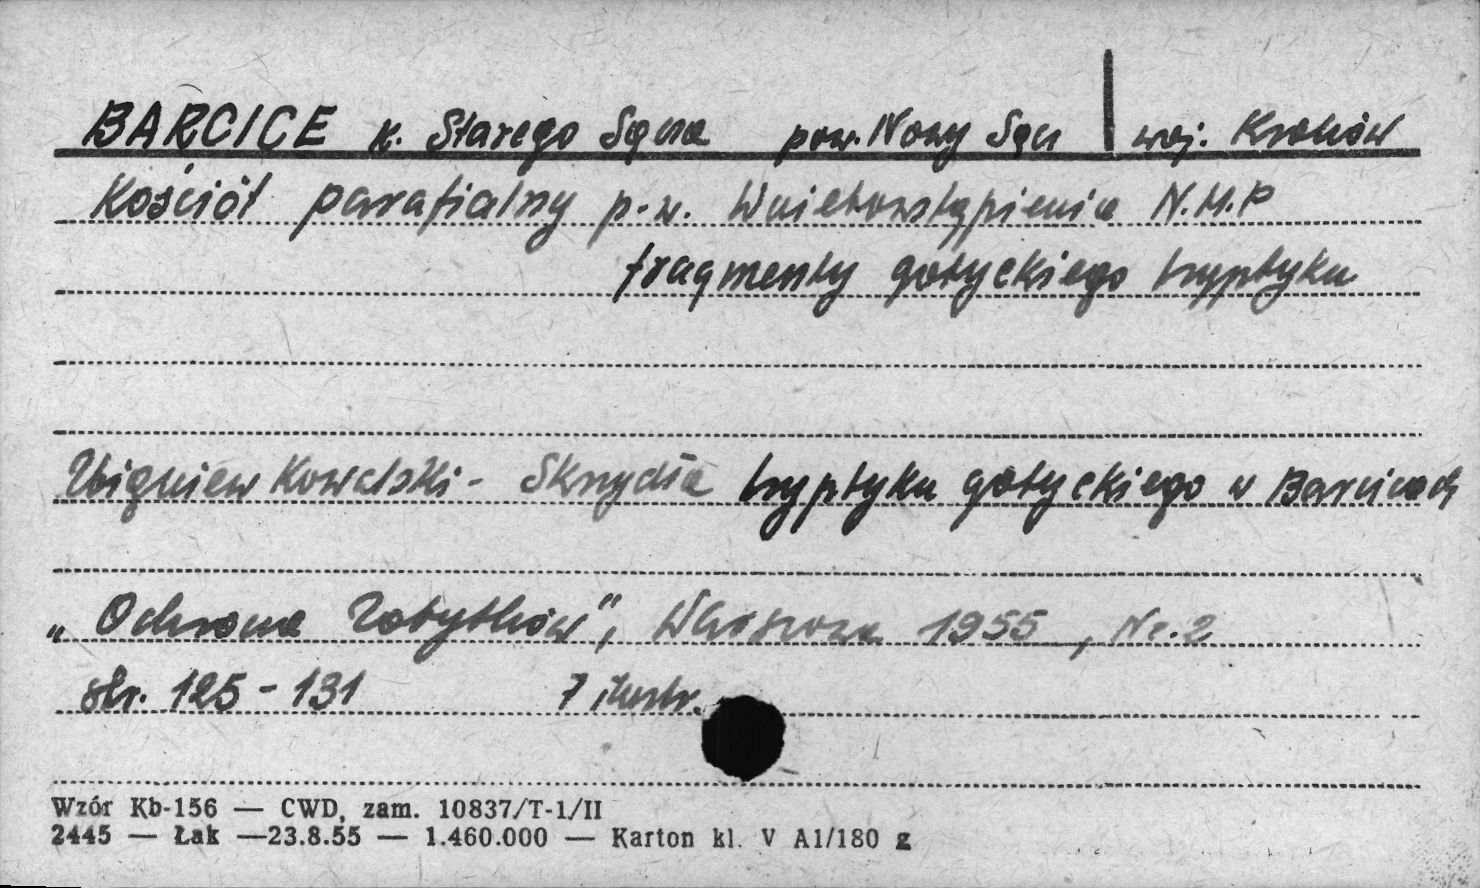 BARCICE k. Starego Sącza pow. Nowy Sącz | woj. Kraków
Kościół parafialny p.w. Wniebowstąpienia N.M.P
fragmenty gotyckiego tryptyku
Zbigniew Kowalski - Skrzydła tryptyku gotyckiego w Barcicach
„Ochrona Zabytków", Warszawa 1955, Nr. 2
str. 125 - 131 7 ilustr.
Wzór Kb-156 — CWD, zam. 10837/T-1/II
2445 — Łak —23.8.55 — 1.460.000 — Karton kl. V A1/180 g